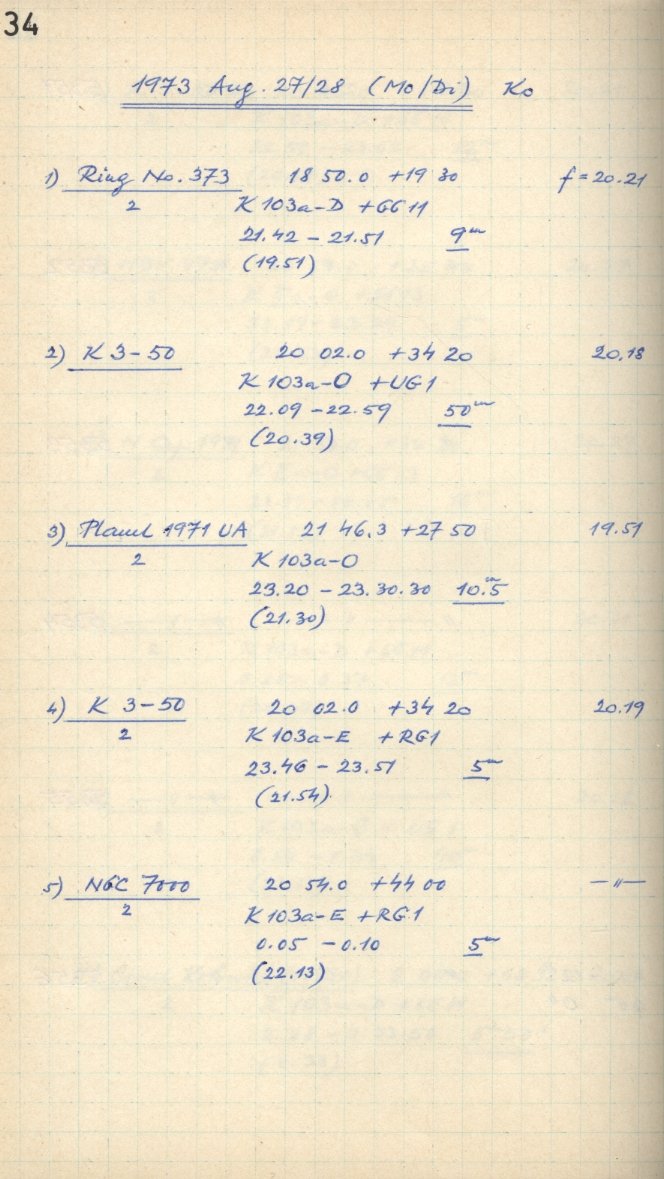 34
1973 Aug. 27/28 (Mo/Di) Ko
1) Ring No. 373 18 50.0 +19 30 f = 20.21
2 K 103a-D + GG 11
21.42 – 21.51 9m
(19.51)
2) K 3-50 20 02.0 +34 20 20.18
K 103a-O + UG1
22.09 – 22.59 50m
(20.39)
3) Planet 1971 UA 21 46.3 +27 50 19.51
2 K 103a-O
23.20 – 23.30.30 10.5m
(21.30)
4) K 3-50 20 02.0 +34 20 20.19
2 K 103a-E + RG1
23.46 – 23.51 5m
(21.54)
5) NGC 7000 20 54.0 +44 00 —"—
2 K 103a-E + RG1
0.05 – 0.10 5m
(22.13)